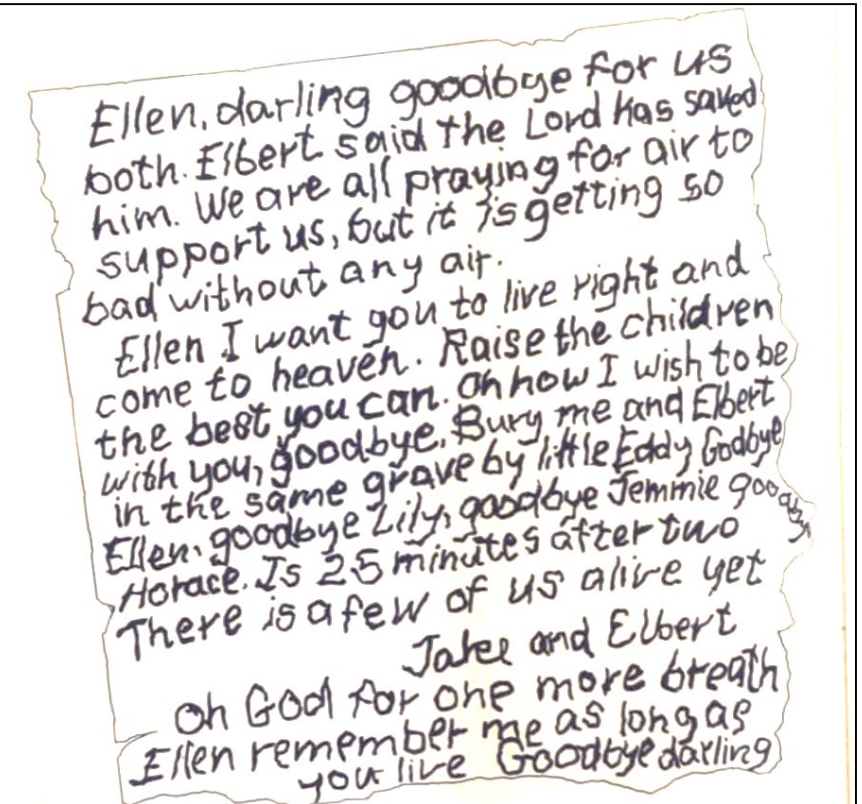 Ellen, darling goodbye for us
both. Elbert said the Lord has saved
him. We are all praying for air to
support us, but it is getting so
bad without any air.
Ellen I want you to live right and
come to heaven. Raise the children
the best you can. Oh how I wish to be
with you, goodbye. Bury me and Elbert
in the same grave by little Eddy Godbye
Ellen, goodbye Lily, goodbye Jemmie goodbye
Horace. Is 25 minutes after two
There is a few of us alive yet
Jake and Elbert
Oh God for one more breath
Ellen remember me as long as
you live Goodbye darling